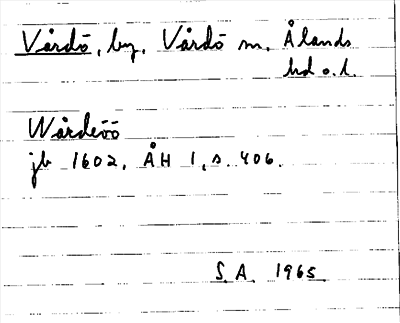 Vårdö, by, Vårdö sn, Ålands
hd o. l.
Wårdeöö
jb 1602, ÅH 1, s. 406.
S.A. 1965